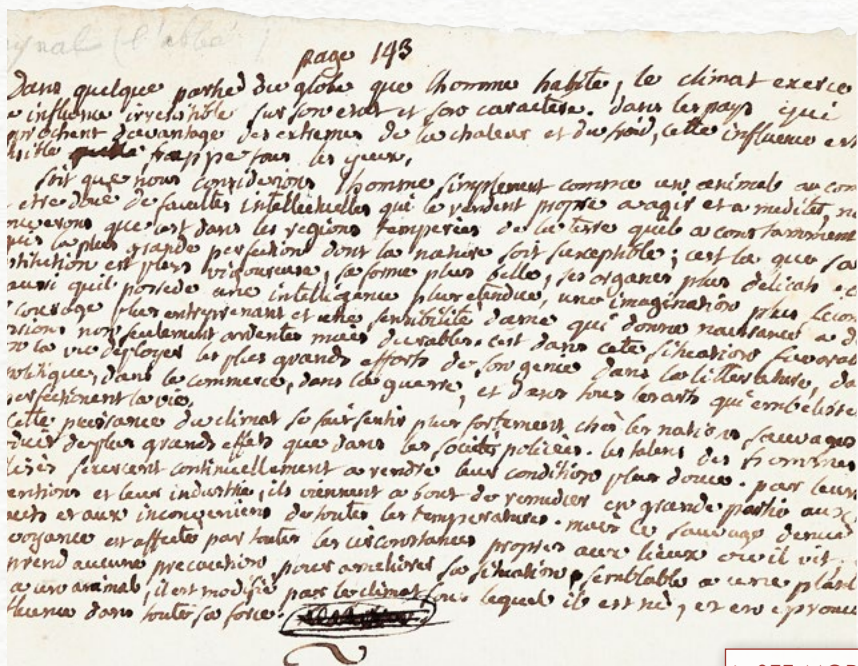 ynal (l'abbé )
page 143
Dans quelque partie du globe que l'homme habite, le climat exerce
e influence irresistible sur son etat et son caractere. dans les pays qui
prochent davantage des extremes de la chaleur et du froid, cette influence est
sible frappe tous les yeux.
soit que nous considerions l'homme simplement comme un animal ou com
etre doué de facultés intellectuelles qui le rendent propre a agir et a mediter, no
verons que c'est dans les regions temperées de la terre qu'il a constamment
quis la plus grande perfection dont la nature soit susceptible; c'est la que sa
stitution est plus vigoureuse, sa forme plus belle, ses organes plus délicats.
aussi qu'il possede une intelligence plus etendue, une imagination plus
courage plus entreprenant et une sensibilité d'ame qui donna naissance a d
ssions non seulement ardentes mais durables. c'est dans cete situation favorab
la vie deployer les plus grands efforts de son genie dans la litterature, da
olitique, dans le commerce, dans la guerre, et dans tous les arts qui embelisse
perfectionent la vie.
cette puissance du climat se fait sentir plus fortement chés les nations sauvages
duit de plus grands effets que dans les societés policées. les talens des hommes
lisés s'exercent continuellement a rendre leur condition plus douce. par leurs
entions et leur industrie, ils viennent a bout de remedier en grande partie aux
auts et aux inconveniens de toutes les temperatures. mais le sauvage denué
voyance est affecté par toutes les circonstances propres aux lieux ou il vit.
prend aucune precaution pour ameliorer sa situation semblable a une plant
a un animal, il est modifié par le climat sous lequel il est né, et en eprouve
fluence dans toute sa force.